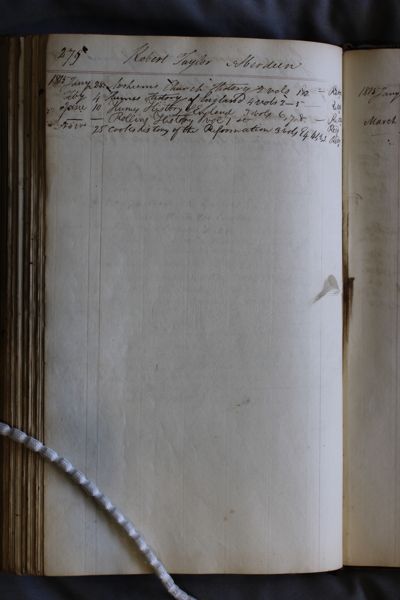 279
Robert Taylor Aberdeen
1815 Jany 28 Church History 2 vols
Feby 4 Humes History of England 4 vols 2-5
June 10 Humes History England 3 vols 6, 7, 8
— Rollins History vol 1
Novr 25 Cooks history of the Reformation 3 vols
1815 Jany
March